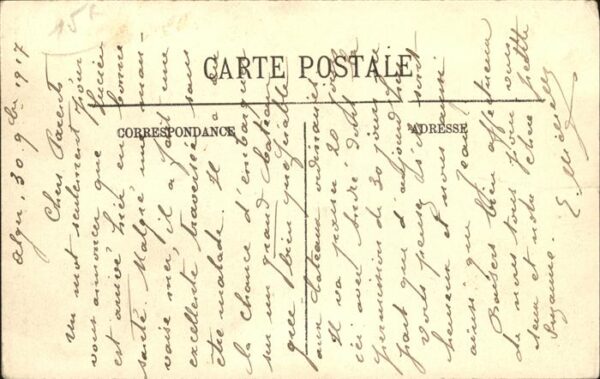 15f
CARTE POSTALE
CORRESPONDANCE
ADRESSE
Alger, 30 9bre 1917
Chers Parents
Un mot seulement pour
vous annoncer que Lucien
est arrivé hier en bonne
santé. Malgré une mau-
vaise mer, il a fait une
excellente traversée sans
être malade. Il a eu
la chance d'embarquer
sur un grand bateau
que bien que
aux bateaux ordinaires
Il va passer 20 jours
ici avec André dont la
permission de 30 jours ne
part que d'aujourd'hui
Vous pensez s'ils sont
heureux et nous aussi
ainsi que Jean.
Baisers bien affectueux
de nous tous pour vous
deux et notre chère petite
Suzanne.
E.